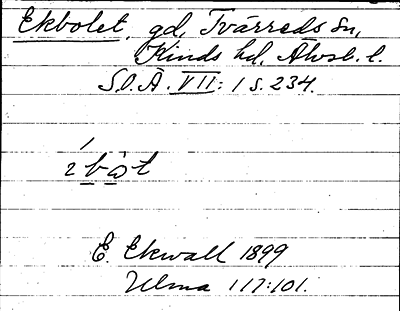 Ekbolet, gd, Tvärreds sn,
Kinds hd, Älvsb. l.
S.O.Ä. VII: 1 s. 234.
E. Ekwall 1899
Ulma 117:101.